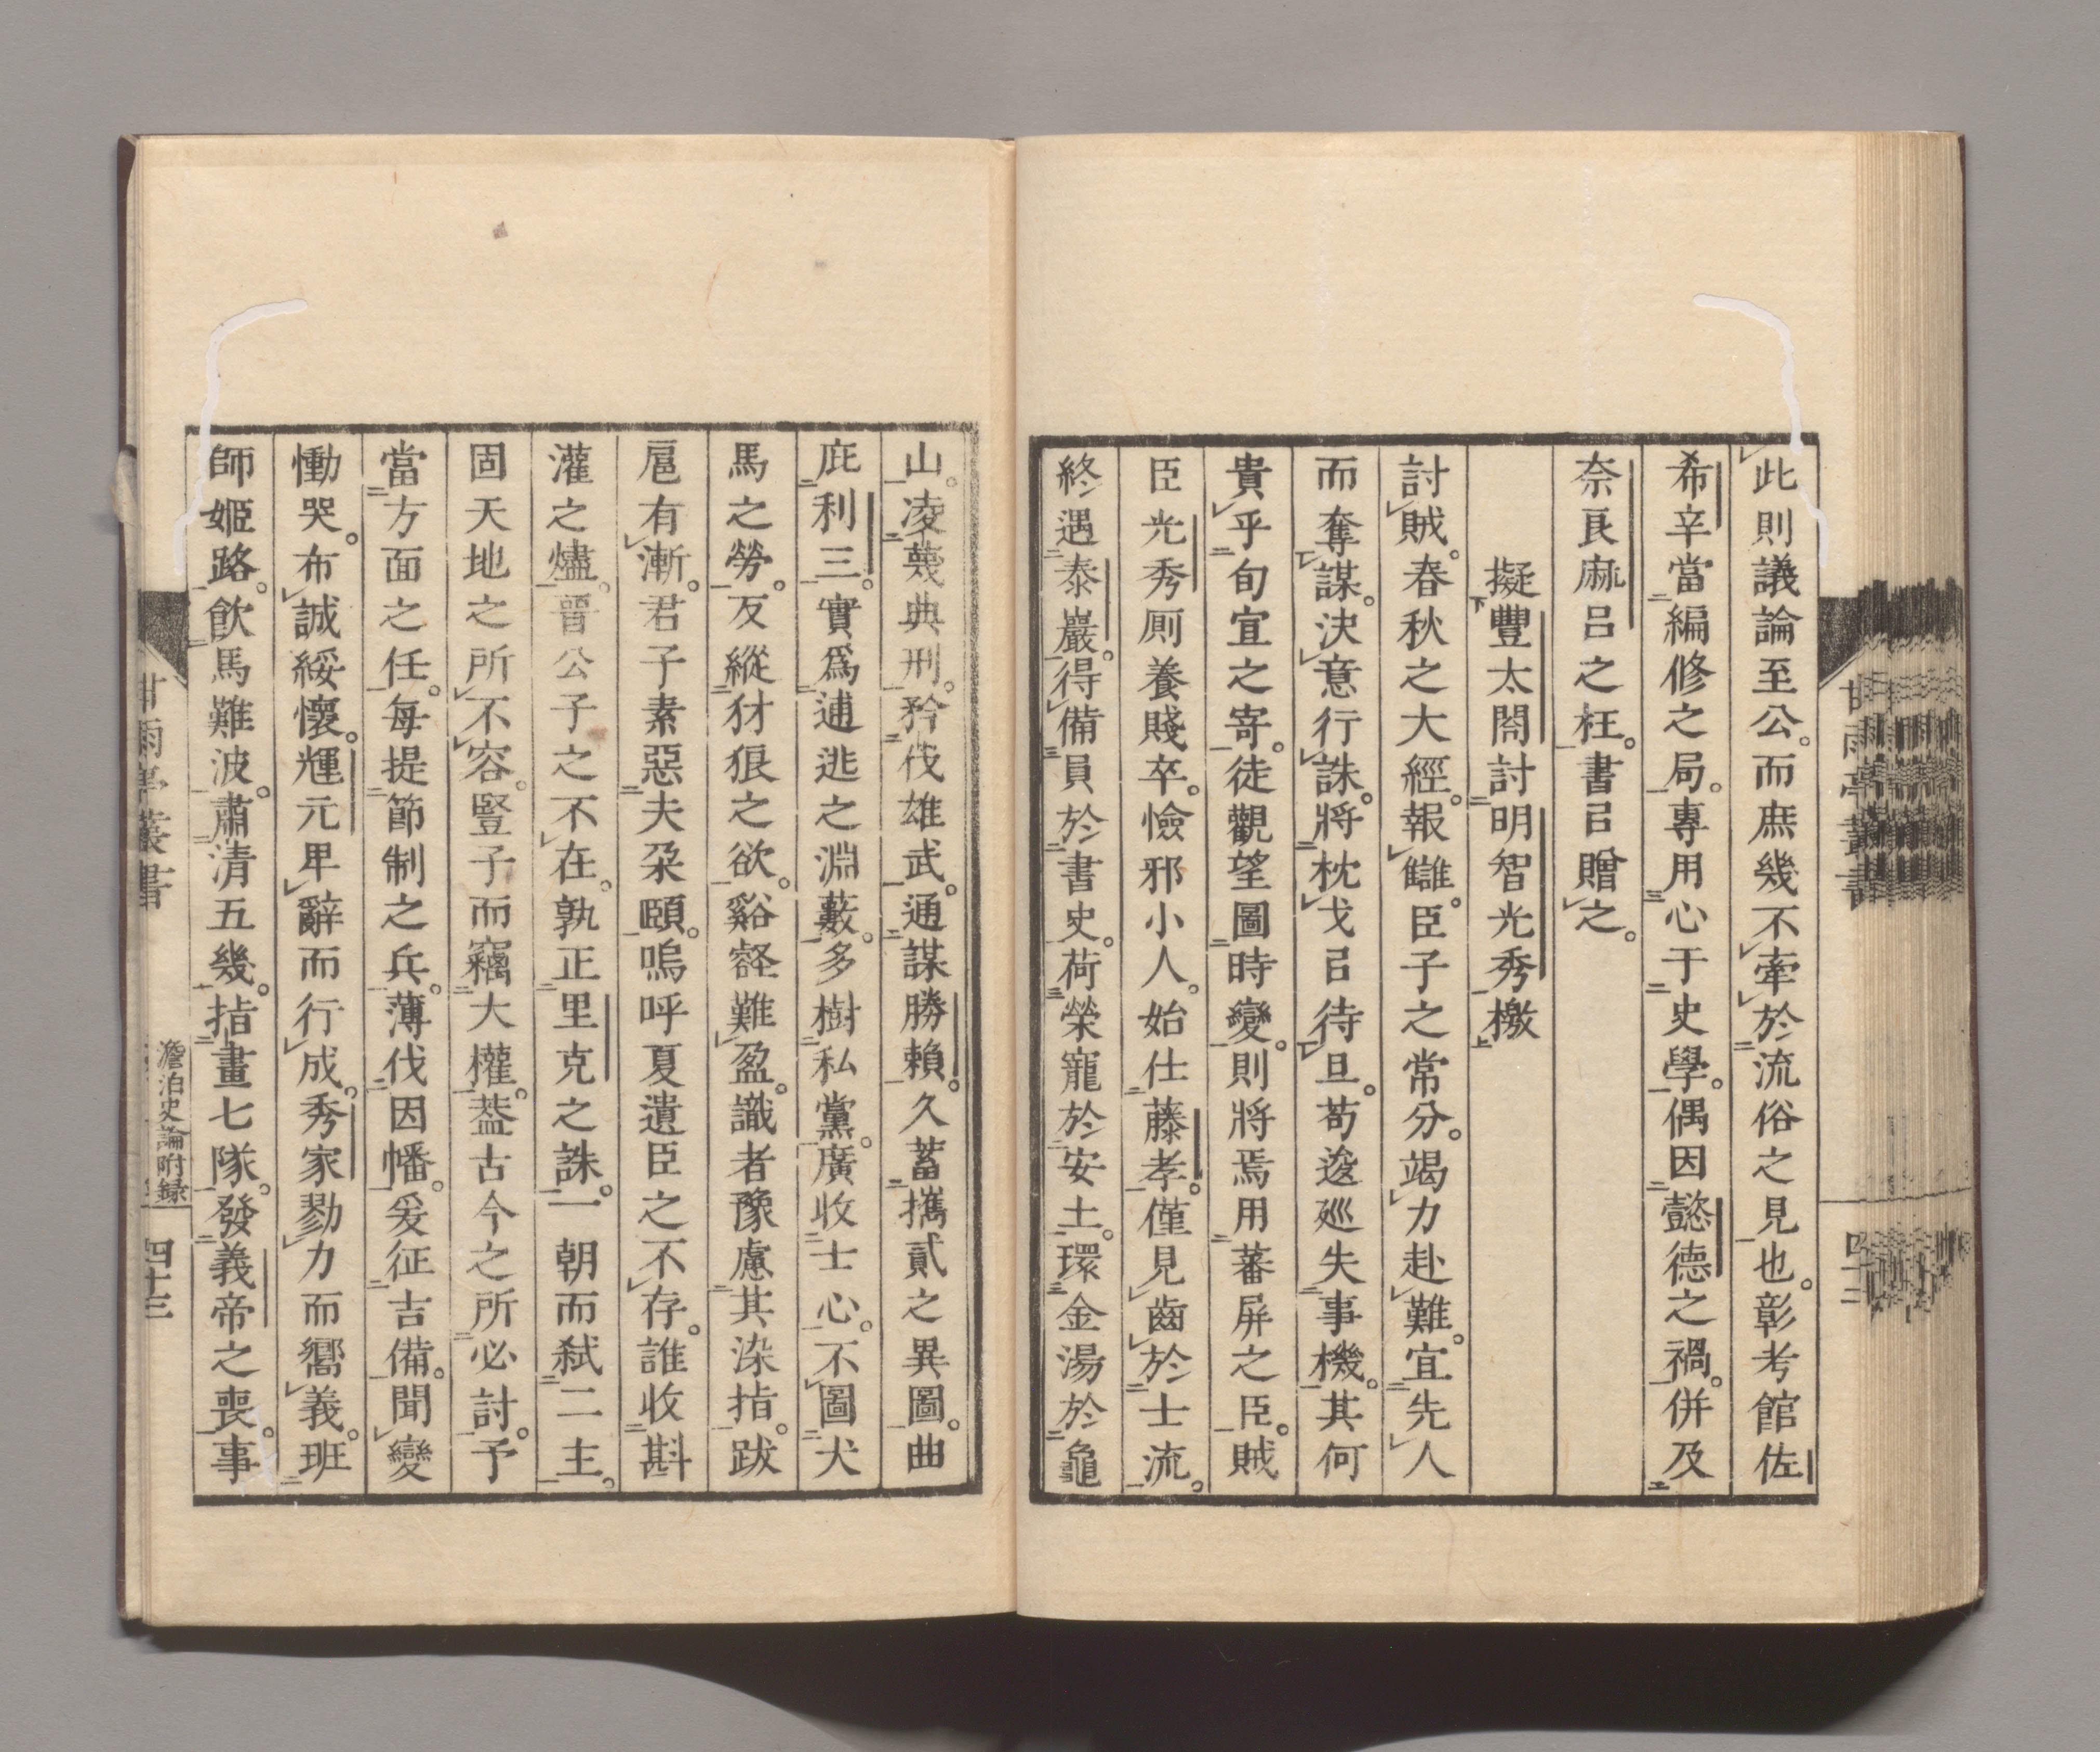 此則議論至公。而庶幾不牽於流俗之見也。彰考館佐
希辛當編修之局。專用心于史學。偶因懿德之禍。併及
奈良麻呂之枉。書㠯贈之。
擬豐太閤討明智光秀檄
討賊。春秋之大經。報讎。臣子之常分。竭力赴難。宜先人
而奪謀。決意行誅。將枕戈㠯待旦。苟逡廵失事機。其何
貴乎旬宣之寄。徒觀望圖時變。則將焉用蕃屏之臣。賊
臣光秀厠養賤卒。憸邪小人。始仕藤孝。僅見齒於士流。
終遇泰巖。得備員於書史。荷榮寵於安土。環金湯於龜
山。凌蔑典刑。矜伐雄武。通謀勝賴。久蓄攜貳之異圖。曲
庇利三。實爲逋逃之淵藪。多樹私黨。廣收士心。不圖犬
馬之勞。反縱豺狼之欲。谿壑難盈。識者豫慮其染指。跋
扈有漸。君子素惡夫朶頤。嗚呼夏遺臣之不存。誰收斟
灌之燼。晉公子之不在。孰正里克之誅。一朝而弑二主。
固天地之所不容。豎子而竊大權。葢古今之所必討。予
當方面之任。每提節制之兵。薄伐因幡。爰征吉備。聞變
慟哭。布誠綏懷。輝元卑辭而行成。秀家勠力而嚮義。班
師姬路。飮馬難波。肅清五畿。指畫七隊。發義帝之喪。事
甘雨亭叢書
澹泊史論附錄
四十三
甘雨亭叢書